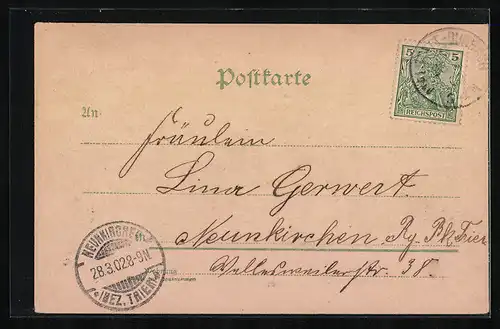 5 5
REICHSPOST
Postkarte
An
Fräulein
Lina Gerwert
Neunkirchen Rg. Bk. Trier
Wellesweilerstr. 38.
NEUNKIRCHEN
28.3.02.8-9N
(BEZ. TRIER)